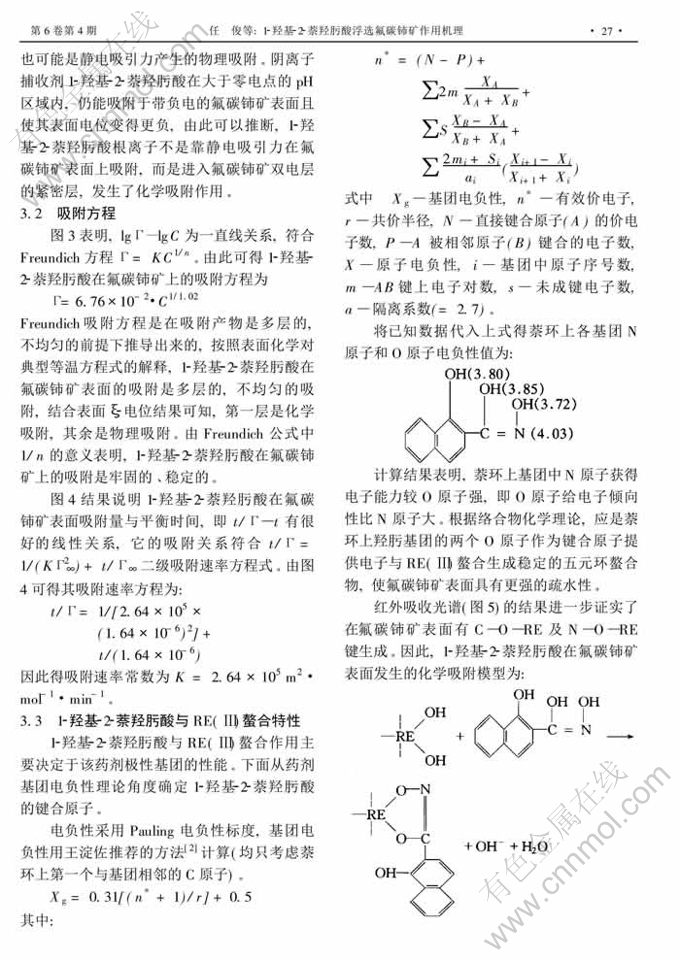 第 6 卷第 4 期 任 俊等: 1-羟基-2-萘羟肟酸浮选氟碳铈矿作用机理 · 27 ·
也可能是静电吸引力产生的物理吸附。阴离子
捕收剂 1-羟基-2-萘羟肟酸在大于零电点的 pH
区域内, 仍能吸附于带负电的氟碳铈矿表面且
使其表面电位变得更负, 由此可以推断, 1-羟
基-2-萘羟肟酸根离子不是靠静电吸引力在氟
碳铈矿表面上吸附, 而是进入氟碳铈矿双电层
的紧密层, 发生了化学吸附作用。
3. 2 吸附方程
图 3 表明, lg Γ—lg C 为一直线关系, 符合
Freundich 方程 Γ = KC^{1/n}。由此可得 1-羟基-
2-萘羟肟酸在氟碳铈矿上的吸附方程为
Γ= 6. 76 × 10^{-2}• C^{1/1. 02}
Freundich 吸附方程是在吸附产物是多层的,
不均匀的前提下推导出来的, 按照表面化学对
典型等温方程式的解释, 1-羟基-2-萘羟肟酸在
氟碳铈矿表面的吸附是多层的, 不均匀的吸
附, 结合表面 ξ-电位结果可知, 第一层是化学
吸附, 其余是物理吸附。由 Freundich 公式中
1/ n 的意义表明, 1-羟基-2-萘羟肟酸在氟碳铈
矿上的吸附是牢固的、稳定的。
图 4 结果说明 1-羟基-2-萘羟肟酸在氟碳
铈矿表面吸附量与平衡时间, 即 t/ Γ—t 有很
好的线性关系, 它的吸附关系符合 t/ Γ =
1/ (K Γ²∞) + t/ Γ∞ 二级吸附速率方程式。由图
4 可得其吸附速率方程为:
t/ Γ = 1/[ 2. 64 × 10⁵ ×
( 1. 64 × 10^{-6})²] +
t/ (1. 64 × 10^{-6})
因此得吸附速率常数为 K = 2. 64 × 10⁵ m² •
mol^{-1} • min^{-1}。
3. 3 1-羟基-2-萘羟肟酸与 RE( Ⅲ) 螯合特性
1-羟基-2-萘羟肟酸与 RE( Ⅲ) 螯合作用主
要决定于该药剂极性基团的性能。下面从药剂
基团电负性理论角度确定 1-羟基-2-萘羟肟酸
的键合原子。
电负性采用 Pauling 电负性标度, 基团电
负性用王淀佐推荐的方法[2]计算( 均只考虑萘
环上第一个与基团相邻的 C 原子) 。
X g = 0. 31[ ( n* + 1)/ r] + 0. 5
其中:
n* = (N - P) +
∑2m (X_A)/(X_A + X_B) +
∑S (X_B - X_A)/(X_B + X_A) +
∑ (2m_i + S_i)/(a_i) ((X_{i+1} - X_i)/(X_{i+1} + X_i))
式中 X g —基团电负性, n* —有效价电子,
r —共价半径, N —直接键合原子( A ) 的价电
子数, P —A 被相邻原子( B) 键合的电子数,
X —原子电负性, i —基团中原子序号数,
m —AB 键上电子对数, s —未成键电子数,
a —隔离系数(= 2. 7) 。
将已知数据代入上式得萘环上各基团 N
原子和 O 原子电负性值为:
OH(3.80)
OH(3.85)
OH(3.72)
C = N (4.03)
计算结果表明, 萘环上基团中 N 原子获得
电子能力较 O 原子强, 即 O 原子给电子倾向
性比 N 原子大。根据络合物化学理论, 应是萘
环上羟肟基团的两个 O 原子作为键合原子提
供电子与 RE( Ⅲ) 螯合生成稳定的五元环螯合
物, 使氟碳铈矿表面具有更强的疏水性。
红外吸收光谱( 图 5) 的结果进一步证实了
在氟碳铈矿表面有 C —O —RE 及 N —O —RE
键生成。因此, 1-羟基-2-萘羟肟酸在氟碳铈矿
表面发生的化学吸附模型为:
OH OH OH OH
RE + C = N
OH
O N
RE
O C + OH⁻ + H₂O
OH
有色金属在线
www.cnnmol.com
有色金属在线
www.cnnmol.com